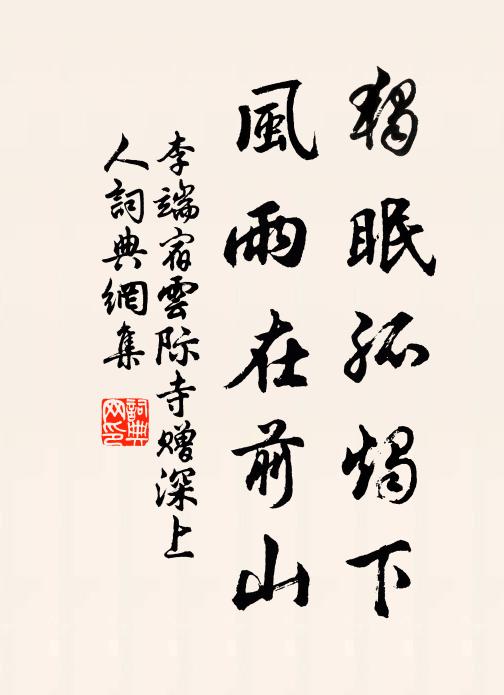 獨眠孤燭下
風雨在前山
李端宿雲際寺贈深上
人詞典網集
詞典
网印